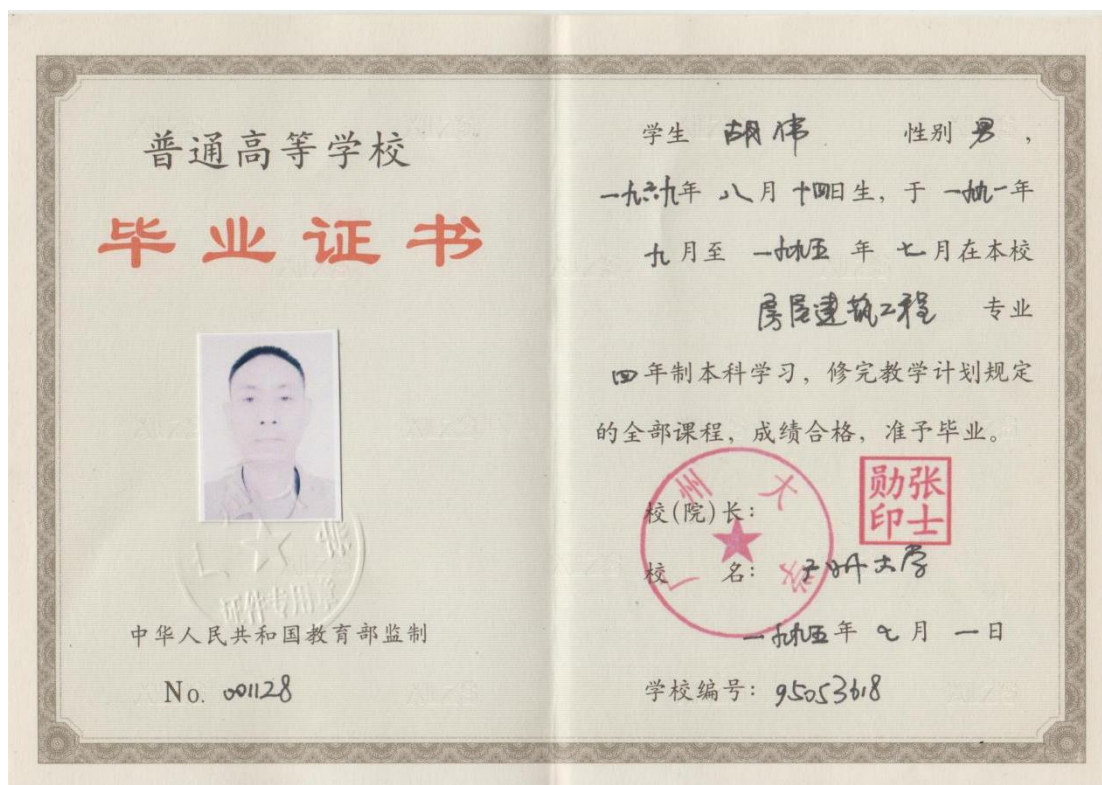 普通高等学校
毕业证书
中华人民共和国教育部监制
No. 001128
学生 胡伟 性别 男，
一九六九年 八月 十四日生，于 一九九一年
九月至 一九九五 年 七月在本校
房屋建筑工程 专业
四年制本科学习，修完教学计划规定
的全部课程，成绩合格，准予毕业。
校(院)长：
张士勋印
校 名：广州大学
广州大学
一九九五年 七月 一日
学校编号：95053618
证件专用章